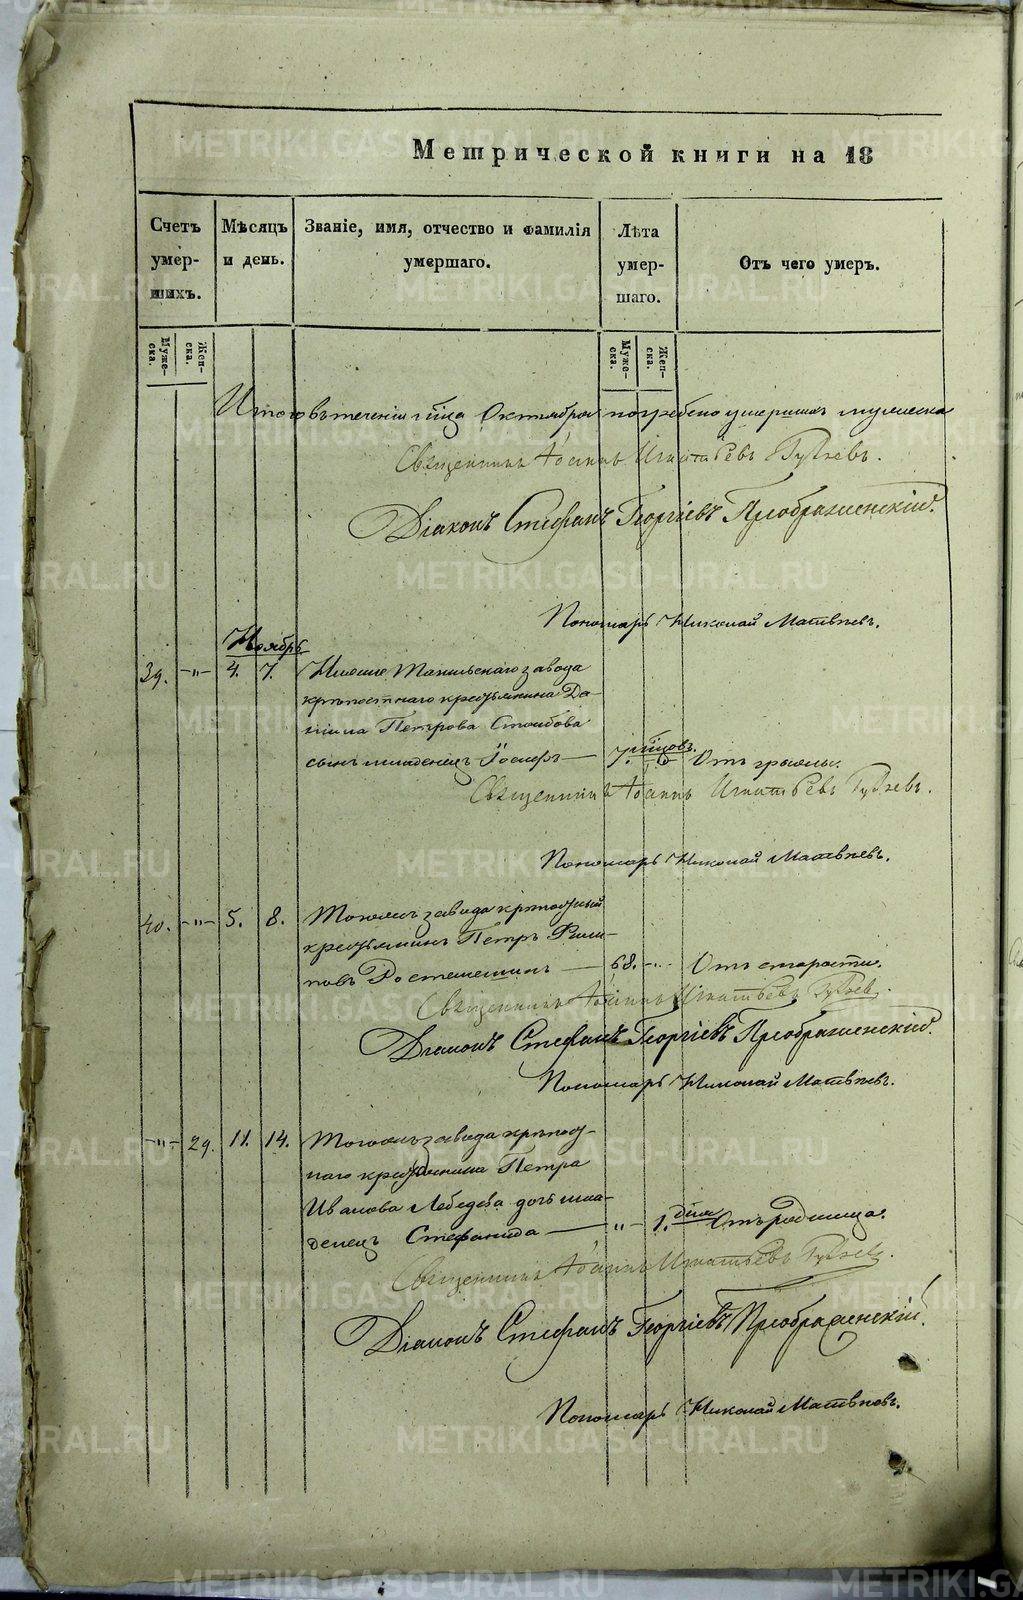 Метрической книги на 18
Счетъ умер-шихъ.
Мѣсяцъ и день.
Званіе, имя, отчество и фамилія умершаго.
Лѣта умер-шаго.
Отъ чего умеръ.
Муже-ска.
Жен-ска.
Муже-ска.
Жен-ска.
Итого въ теченіи мѣсяца Октября погребено умершихъ мужеска
Священникъ Іоаннъ Игнатьевъ
Діаконъ Стефанъ Георгіевъ Преображенскій.
Пономарь Николай Матвѣевъ.
Ноябрь
39. -"- 4. 7. Нижне Тагильскаго завода
крѣпостнаго крестьянина Да-
ніила Петрова Столбова
сынъ младенецъ Іосифъ — 7. мѣсяцовъ. Отъ грыжи.
Священникъ Іоаннъ Игнатьевъ
Пономарь Николай Матвѣевъ.
40. -"- 5. 8. Тогожъ завода крѣпостный
крестьянинъ Петръ Филип-
повъ — 68. -"- Отъ старости.
Священникъ Іоаннъ Игнатьевъ
Діаконъ Стефанъ Георгіевъ Преображенскій.
Пономарь Николай Матвѣевъ.
-"- 29. 11. 14. Тогожъ завода крѣпост-
наго крестьянина Петра
Иванова Лебедева дочь мла-
денецъ Стефанида — " - 1. дня Отъ родимца.
Священникъ Іоаннъ Игнатьевъ
Діаконъ Стефанъ Георгіевъ Преображенскій.
Пономарь Николай Матвѣевъ.
METRIKI.GASO-URAL.RU